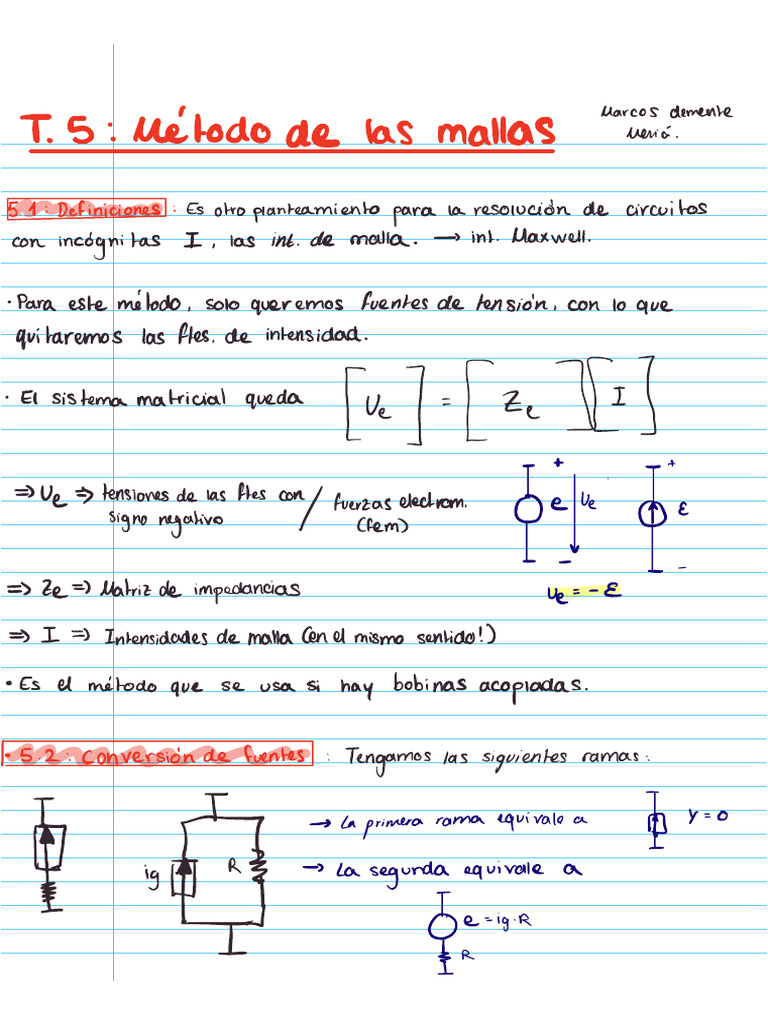 T.5: Método de las mallas
Marcos Clemente
5.1: Definiciones: Es otro planteamiento para la resolución de circuitos
con incógnitas I, las int. de malla. → int. Maxwell.
· Para este método, solo queremos fuentes de tensión, con lo que
quitaremos las ftes. de intensidad.
· El sistema matricial queda [Ue] = [Ze][I]
⇒ Ue ⇒ tensiones de las ftes con signo negativo / fuerzas electrom. (fem)
+ e Ue −
+ ε −
Ue = − ε
⇒ Ze ⇒ Matriz de impedancias
⇒ I ⇒ Intensidades de malla (en el mismo sentido!)
· Es el método que se usa si hay bobinas acopladas.
· 5.2: Conversión de fuentes: Tengamos las siguientes ramas:
ig R
→ La primera rama equivale a Y = 0
→ La segunda equivale a
e = ig·R
R